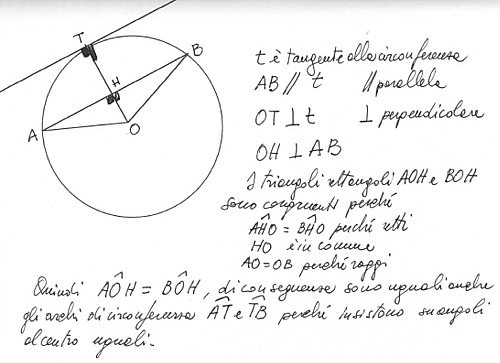 T
B
H
A
O
t è tangente alla circonferenza
AB // t // parallela
OT ⊥ t ⊥ perpendicolare
OH ⊥ AB
I triangoli rettangoli AOH e BOH
sono congruenti perché
AĤO = BĤO perché retti
HO è in comune
AO=OB perché raggi
Quindi AÔH = BÔH, di conseguenza sono uguali anche
gli archi di circonferenza A͡T e T͡B perché insistono su angoli
al centro uguali.